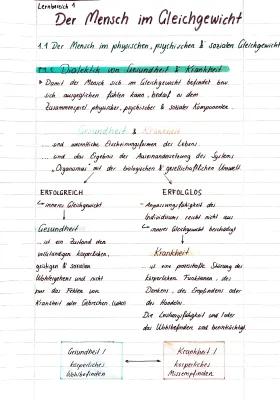 Lernbereich 1
Der Mensch im Gleichgewicht
1.1 Der Mensch im physischen, psychischen & sozialen Gleichgewicht
Dialektik von Gesundheit & Krankheit
Damit der Mensch sich im Gleichgewicht befindet bzw.
sich ausgeglichen fühlen kann, bedarf es dem
Zusammenspiel physischer, psychischer & sozialer Komponenten.
Gesundheit & Krankheit
... sind wesentliche Erscheinungsformen des Lebens
... sind das Ergebnis der Auseinandersetzung des Systems
"Organismus mit der biologischen & gesellschaftlichen Umwelt.
ERFOLGREICH
ERFOLGLOS
inneres Gleichgewicht
- Anpassungsfähigkeit des
Individuums reicht nicht aus
inneres Gleichgewicht beschädigt
Gesundheit
... ist ein Zustand des
vollständigen körperlichen,
geistigen & sozialen
Wohlergehens und nicht
nur das Fehlen von
Krankheit oder Gebrechen.
Krankheit
... ist eine prozesshafte Störung der
körperlichen Funktionen, des
Denkens, des Empfindens oder
des Handelns.
Die Leistungsfähigkeit und/oder
das Wohlbefinden sind beeinträchtigt.
Gesundheit /
körperliches
Wohlbefinden
Krankheit /
körperliches
Missempfinden